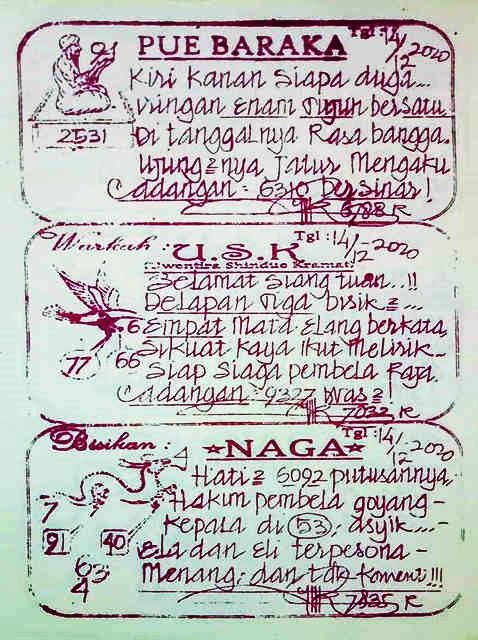 PUE BARAKA
Tgl : 14/12 2020
2531
Kiri Kanan Siapa duga...
Dengan Enam Tujuh bersatu
Di tanggalnya Rasa bangga.
Ujung2nya Jatus Mengaku
Cadangan = 6310 bersinar!
6788 R
Warkah : U.S.K
Tgl : 14/12 - 2020
Shinduo Kramat
Selamat Siang tuan..!!
Delapan Tiga bisik2...
6
Empat Mata Elang berkata
77 66
Sikuat Kaya Ikut Melirik-
Siap Siaga pembela Raja.
Cadangan = 9327 was2!
7032 R
Bisikan : NAGA
Tgl : 14/12 2020
4
Hati2 5092 putusannya
7
Hakim pembela goyang-
91 40
Kepala di 53; asyik...-
63
Ela dan Eli terpesona-
4
Menang; dan tak Koment!!!
7835 R